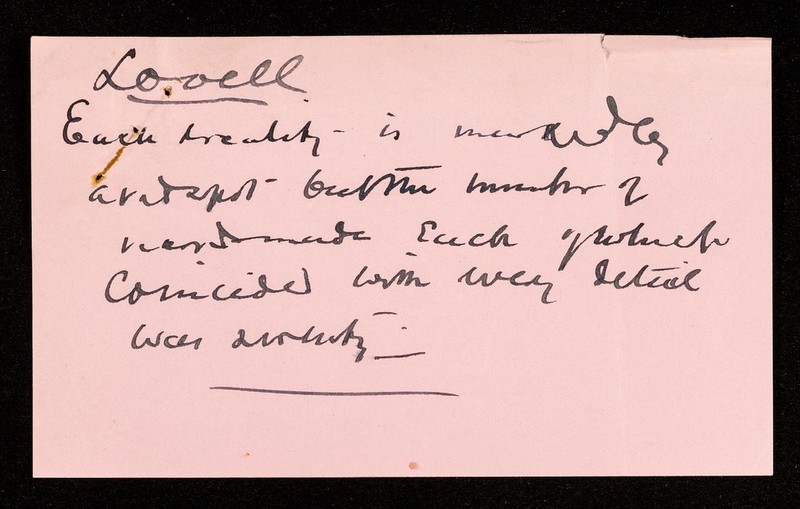 Lovell
Each locality is marked by
a red spot but the number of
records made Each of which
Coincided with every detail
was seventy —